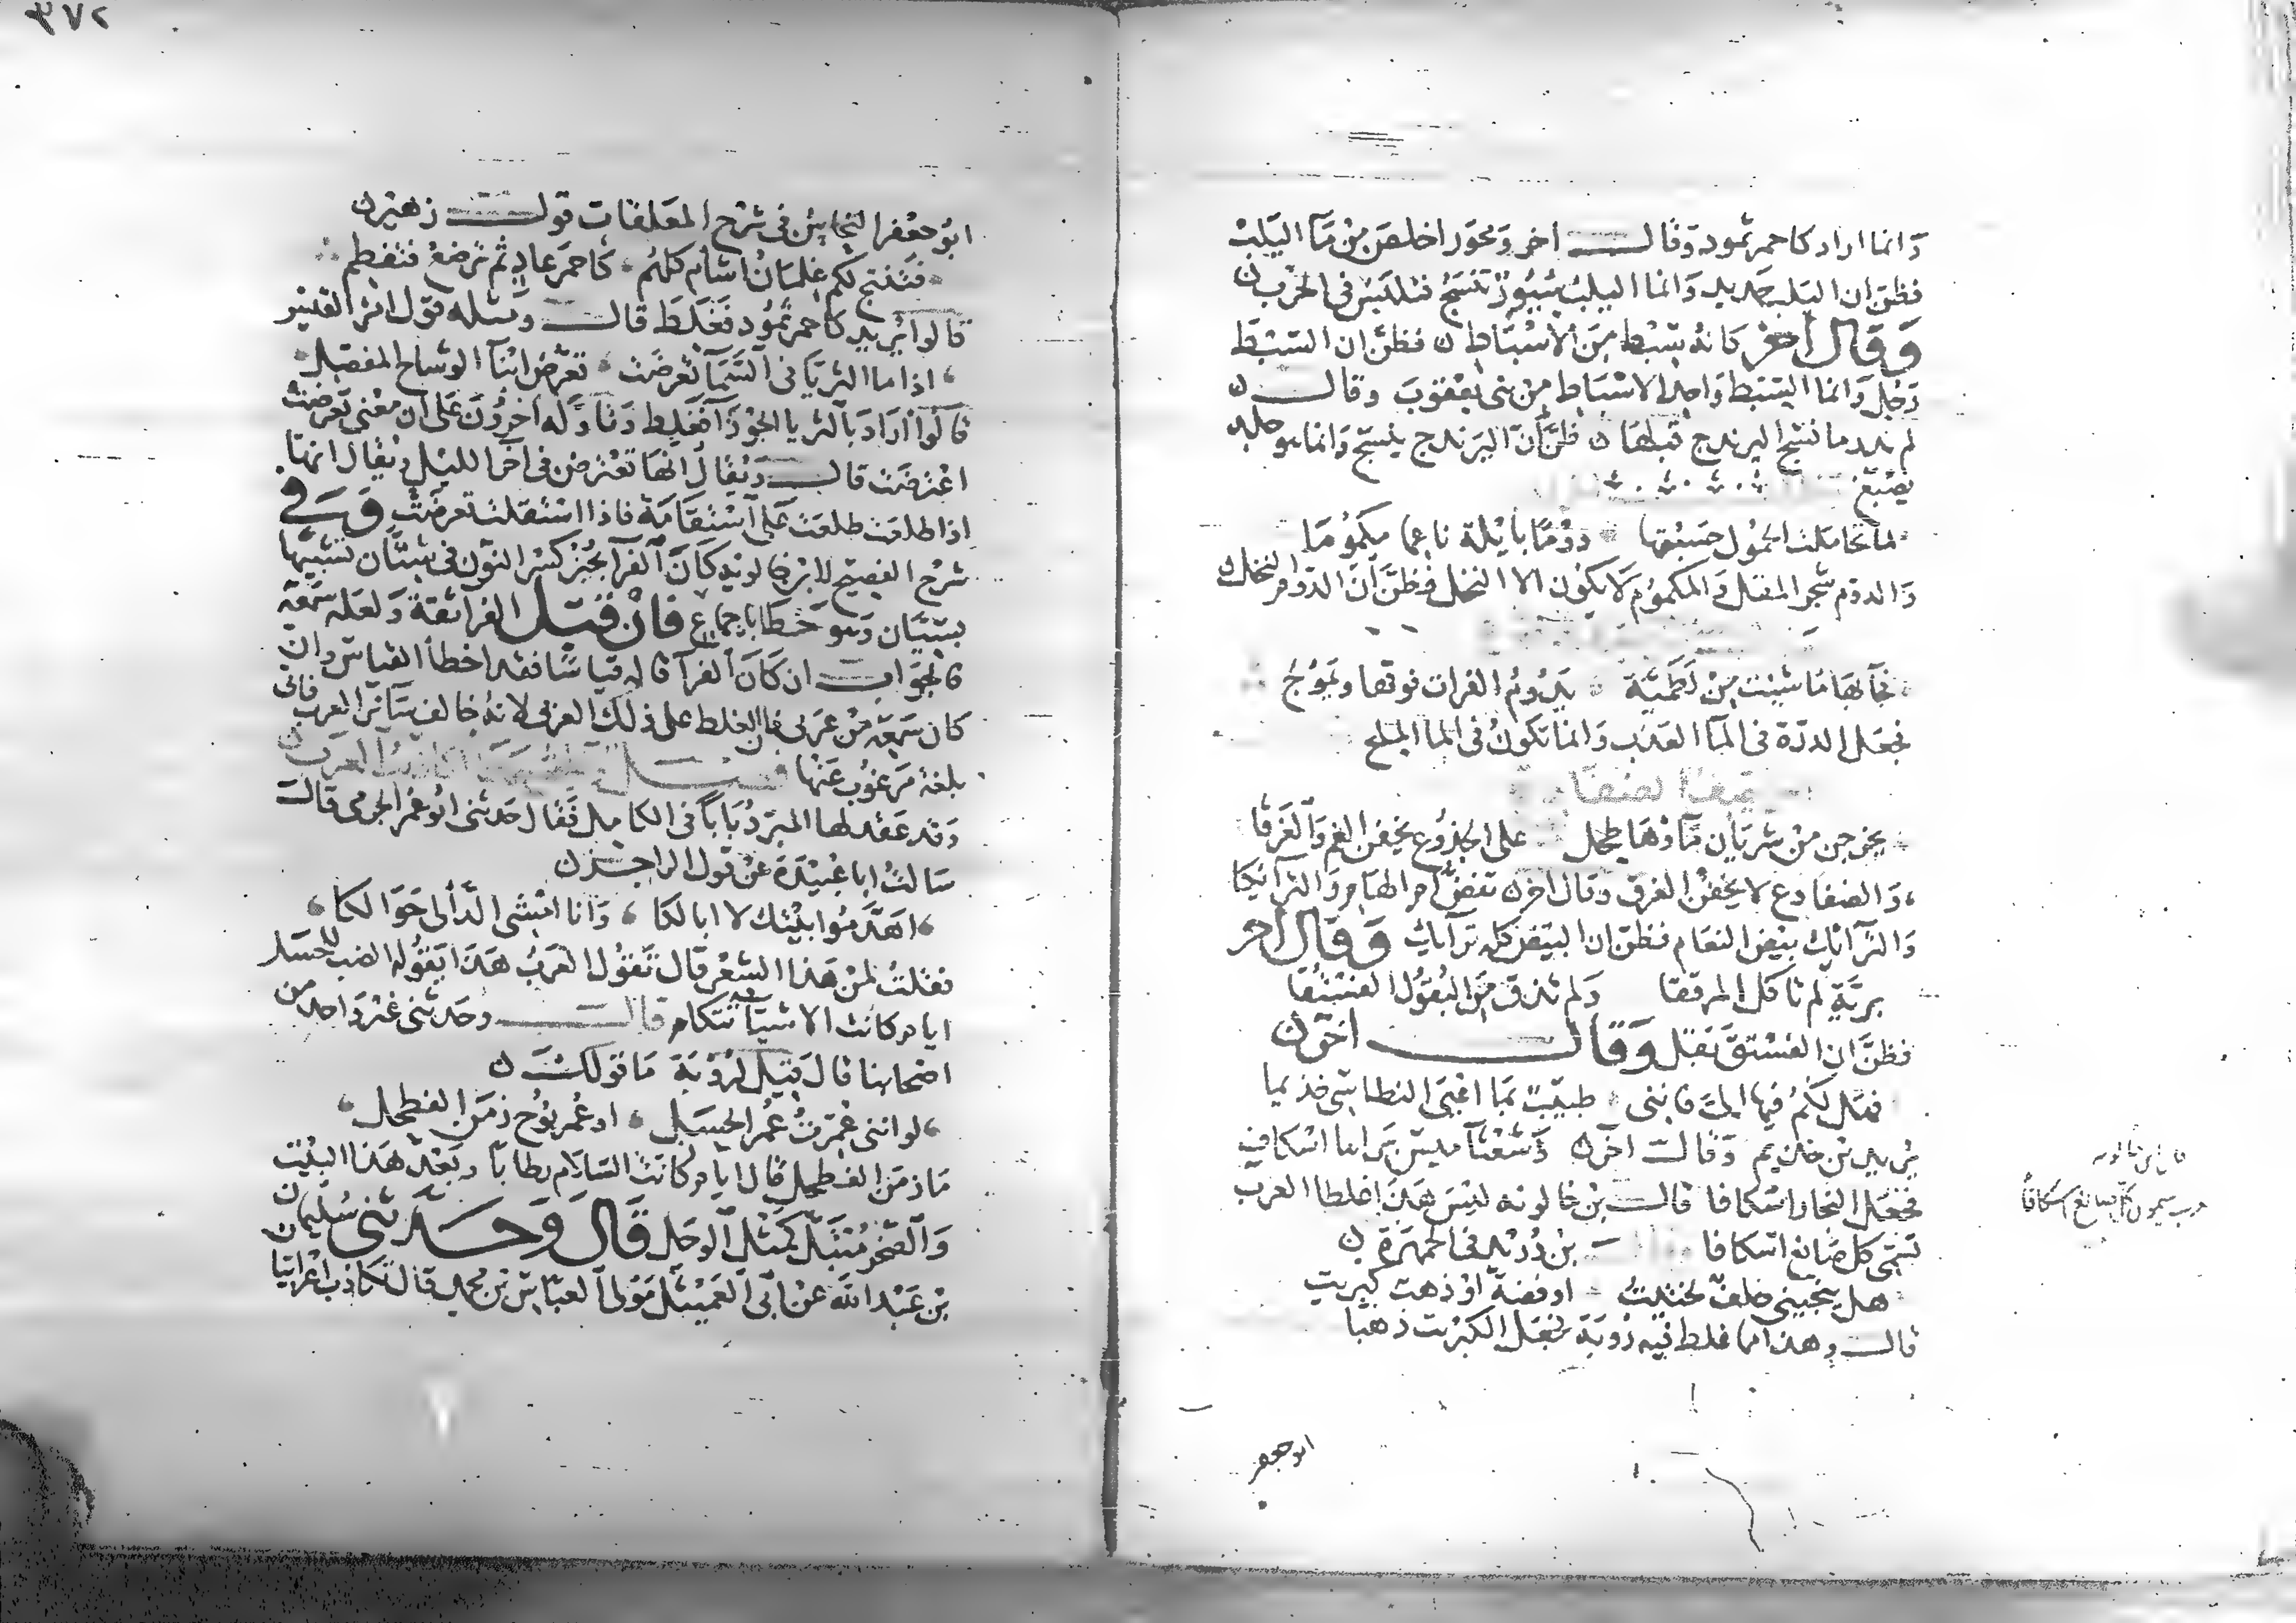 وانما اراد كاحمر ثمود وقال اخر ومحور اخلص من مآ اليلب
فظن ان اليلب حديد وانما اليلب سيور تنسج فتلبس في الحرب
وقال اخر كانه سبط من الاسباط فظن ان السبط
رجل وانما السبط واحد الاسباط من بني يعقوب وقال
لم تدر ما نسج اليرندج قبلها ظن ان اليرندج ينسج وانما هو جلد
يصبغ
لما تحاملت الحمول حسبتها دوما بايلة ناعما مكموما
والدوم شجر المقل والمكموم لا يكون الا النخل فظن ان الدوم النخل
فجآ بها ما شيت من لطمية يدوم الفرات فوقها ويموج
فجعل الدرة في المآ العذب وانما تكون في المآ الملح
يصف الضفادع
يخرجن من شربات مآوها طحل على الجذوع يخفن الغم والغرقا
والضفادع لا يخفن الغرق وقال اخر تفض ام الهام والترآئكا
والترآئك بيض النعام فظن ان البيض كله ترآئك وقال اخر
برية لم تاكل المرققا ولم تذق من البقول الفستقا
فظن ان الفستق بقل وقال اخر
فهل لكم فيها الي فانني طبيب بما اعيى النطاسي حذيما
يريد بن حذيم وقال اخر وشعبتا ميس براها اسكاف
فجعل النجار اسكافا قال بن خالويه ليس هذا غلطا العرب
تسمى كل صانع اسكافا بن دريد في الجمهرة
هل ينجيني حلف سختيت او فضة او ذهب كبريت
قال وهذا مما غلط فيه روبة فجعل الكبريت ذهبا
قال ابن خالويه
العرب يسمون كل صانع اسكافا
ابو جعفر
٣٧٢
ابو جعفر النحاس في شرح المعلقات قول زهير
فتنتج لكم غلمان اشام كلهم كاحمر عاد ثم ترضع فتفطم
قالوا يريد كاحمر ثمود فغلط قال ومثله قول امرئ القيس
اذا ما الثريا في السمآ تعرضت تعرض اثنآ الوشاح المفصل
قالوا اراد بالثريا الجوزآ فغلط وتاوله اخرون على ان معنى تعرضت
اعترضت قال ويقال انها تعترض في آخر الليل ويقال انها
اذا طلعت طلعت على استقامة فاذا استقلت تعرضت وفي
شرح الفصيح لابن خالويه كان الفرآ يجيز كسر النون في شتان تشبيها
بسيان وهو خطا باجماع فان قيل الفرآ ثقة ولعله سمعه
فالجواب ان كان الفرآ قاله قياسا فقد اخطأ القياس وان
كان سمعه من عربي فان الغلط على ذلك العربي لانه خالف سآئر العرب واتى
بلغة مرغوب عنها فصل
وقد عقد لها المبرد بابا في الكامل فقال حدثني ابو عمر الجرمي قال
سالت ابا عبيدة عن قول الراجز
اهدموا بيتك لا ابا لكا وانا امشى الدألى حوالكا
فقلت لمن هذا الشعر قال تقول العرب هذا يقوله الضب للحسل
ايام كانت الاشيآ تتكلم قال وحدثني غير واحد من
اصحابنا قال قيل لروبة ما قولك
لو انني عمرت عمر الحسل او عمر نوح زمن الفطحل
ما زمن الفطحل قال ايام كانت السلام رطابا وبعد هذا البيت
والصخر مبتل كمثل الوحل قال وحدثني سليمان
بن عبد الله عن ابي العميثل مولى العباس بن محمد قال تكاذب اعرابيا